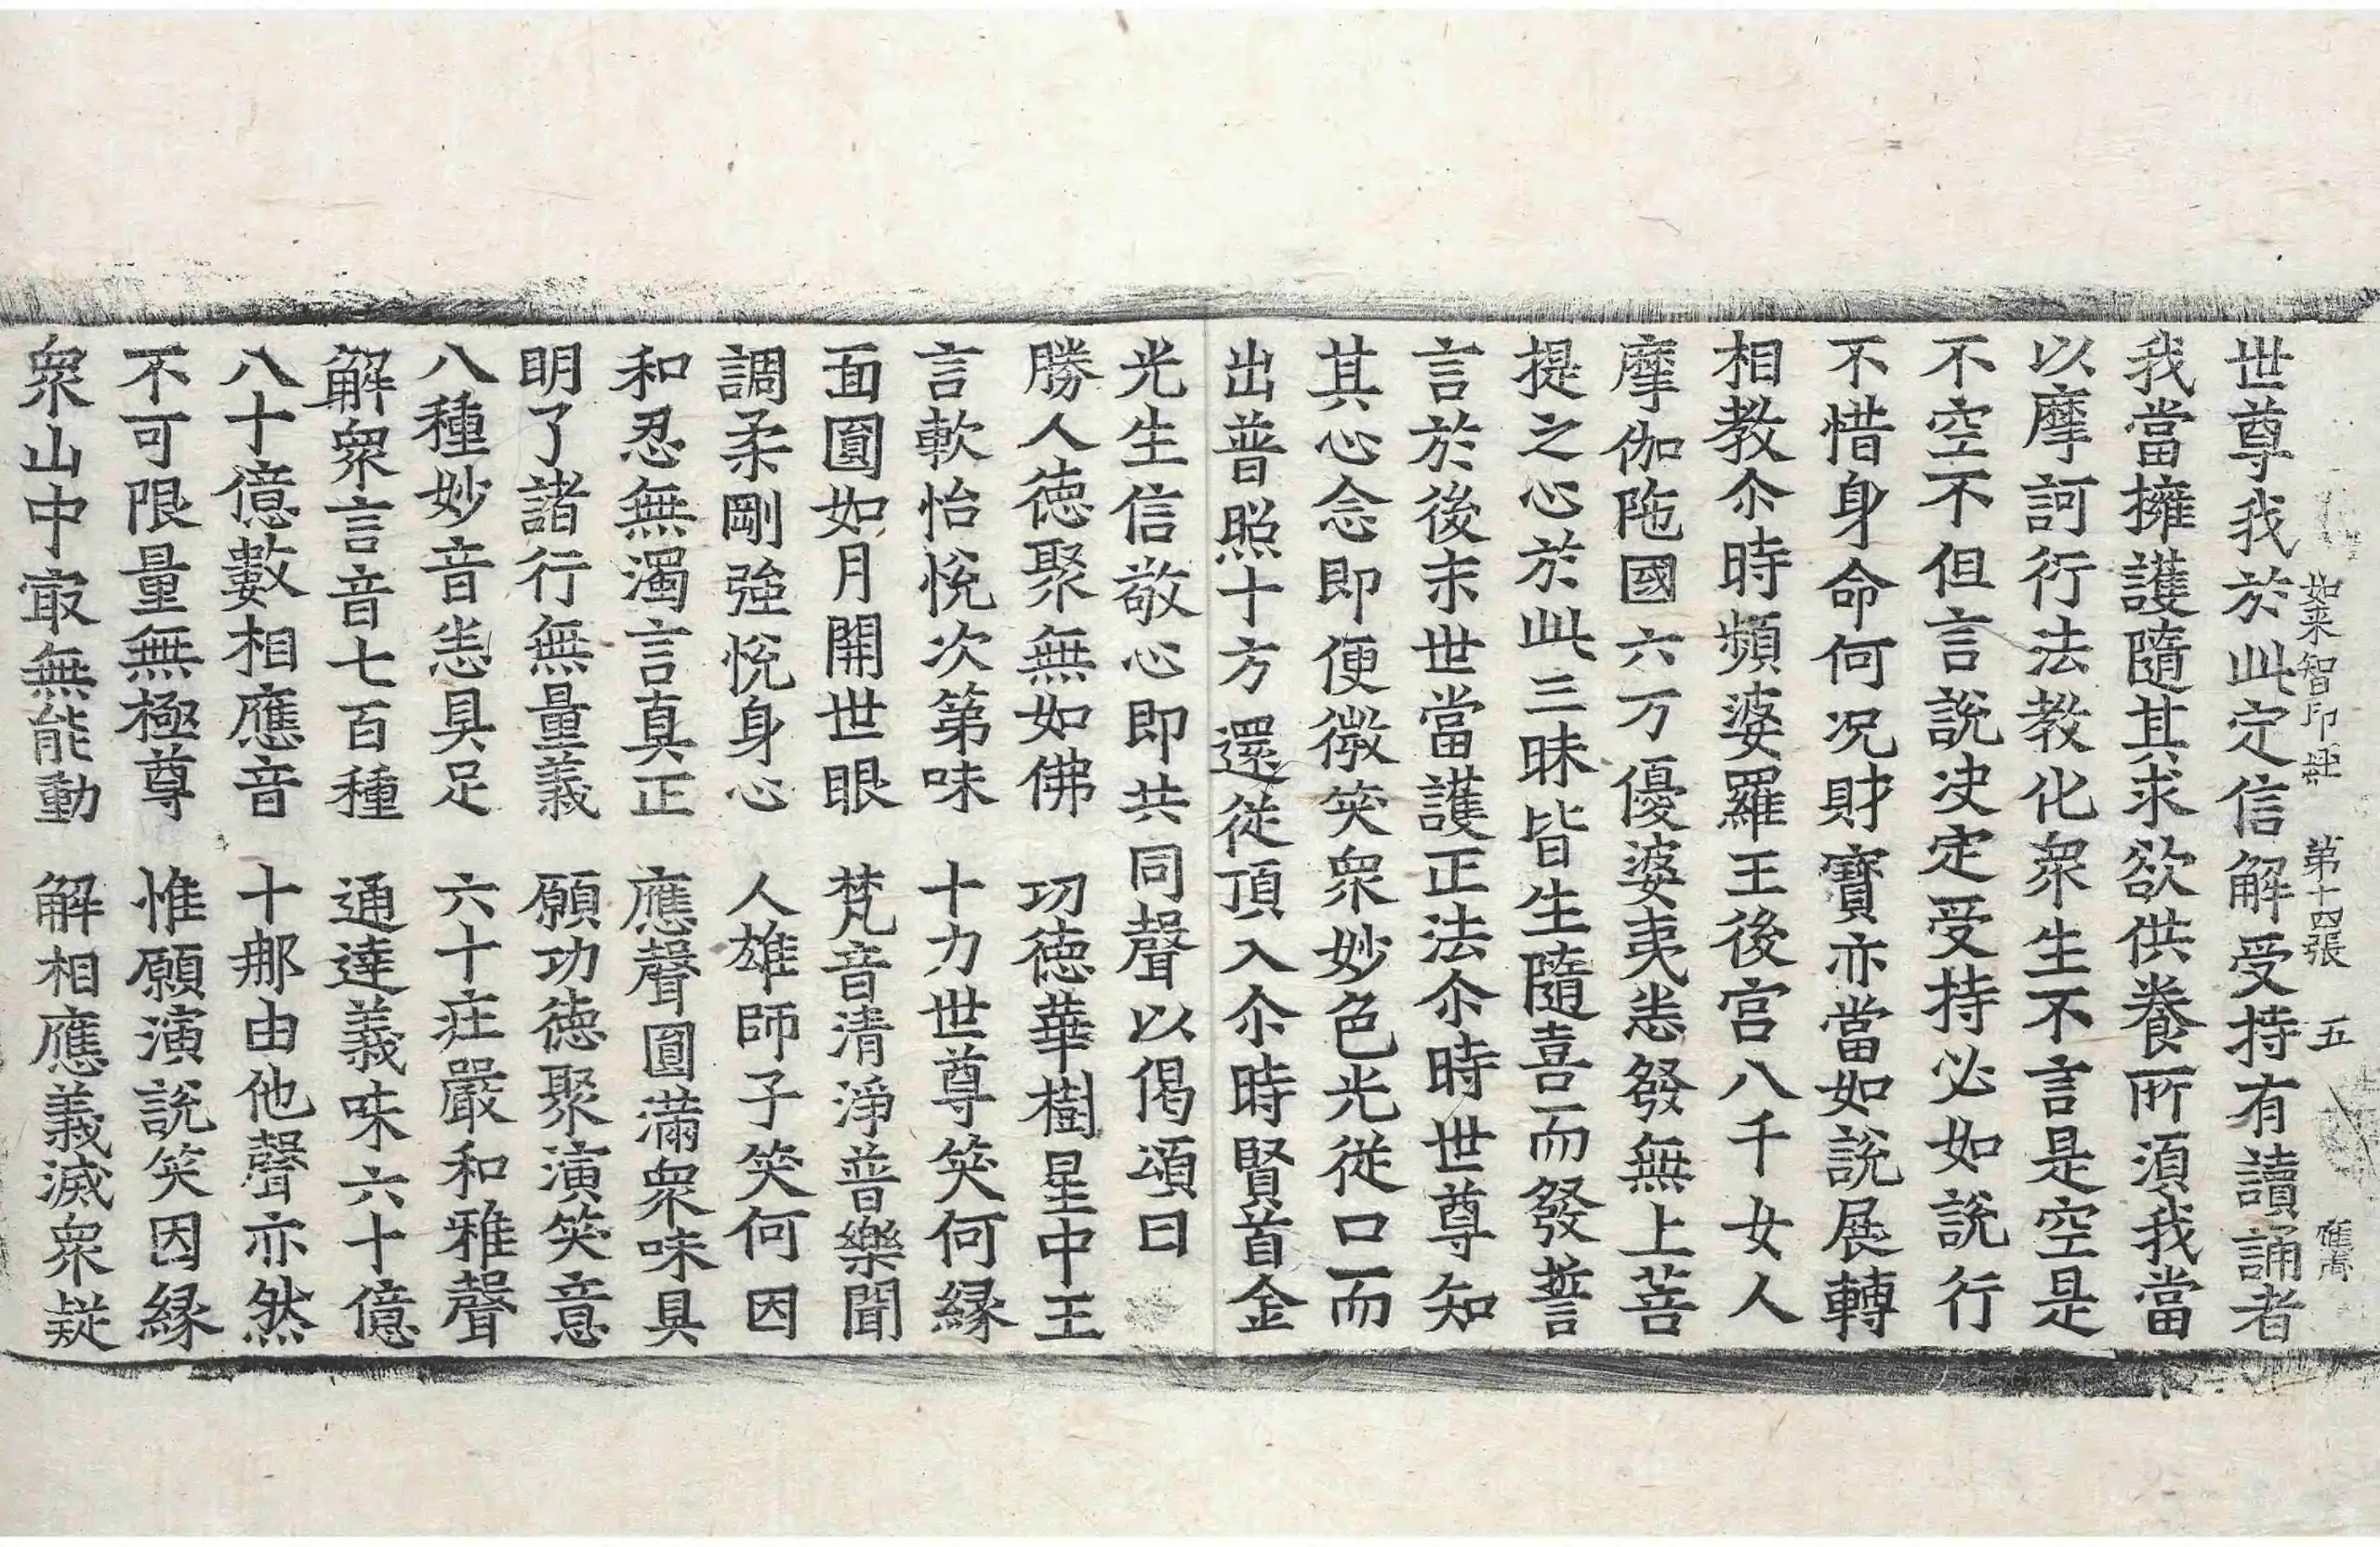 如来智印経 第十四張 五
世尊我於此定信解受持有讀誦者
我當擁護隨其求欲供養所須我當
以摩訶衍法教化衆生不言是空是
不空不但言說决定受持必如說行
不惜身命何况財寶亦當如說展轉
相教尒時頻婆羅王後宫八千女人
摩伽陁國六万優婆夷悉發無上菩
提之心於此三昧皆生隨喜而發誓
言於後末世當護正法尒時世尊知
其心念即便微笑衆妙色光從口而
出普照十方還從頂入尒時賢首金
光生信敬心即共同聲以偈頌曰
勝人德聚無如佛 功德華樹星中王
言軟怡悅次第味 十力世尊笑何緣
面圓如月開世眼 梵音清淨普樂聞
調柔剛強悅身心 人雄師子笑何因
和忍無濁言真正 應聲圓滿衆味具
明了諸行無量義 願功德聚演笑意
八種妙音悉具足 六十莊嚴和雅聲
解衆言音七百種 通達義味六十億
八十億數相應音 十那由他聲亦然
不可限量無極尊 惟願演說笑因緣
衆山中㝡無能動 解相應義滅衆疑